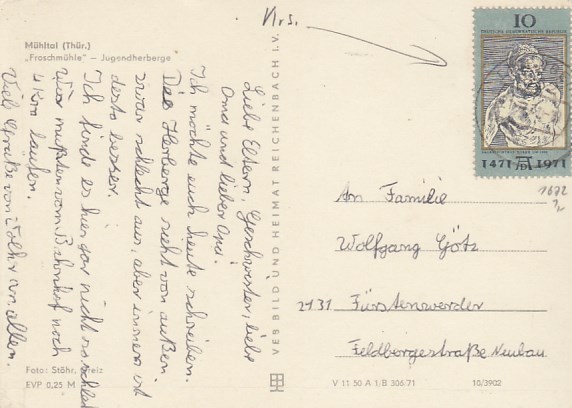 Krs.
10
DEUTSCHE DEMOKRATISCHE REPUBLIK
1471 AD 1971
1672
Mühltal (Thür.)
„Froschmühle“ – Jugendherberge
Liebe Eltern, Geschwister, liebe
Oma und lieber Opa.
Ich möchte euch heute schreiben.
Die Herberge sieht von außen
zwar schlecht aus, aber innen ist
desto besser.
Ich finde es hier gar nicht so schlecht
Wir mußten vom Bahnhof noch
4 Km laufen.
Viel Grüße von an allen.
VEB BILD UND HEIMAT REICHENBACH I. V.
An Familie
Wolfgang Götz
2131 Fürstenwerder
Feldbergestraße Neubau
Foto: Stöhr, Greiz
EVP 0,25 M
V 11 50 A 1. B 306/71
10/3902